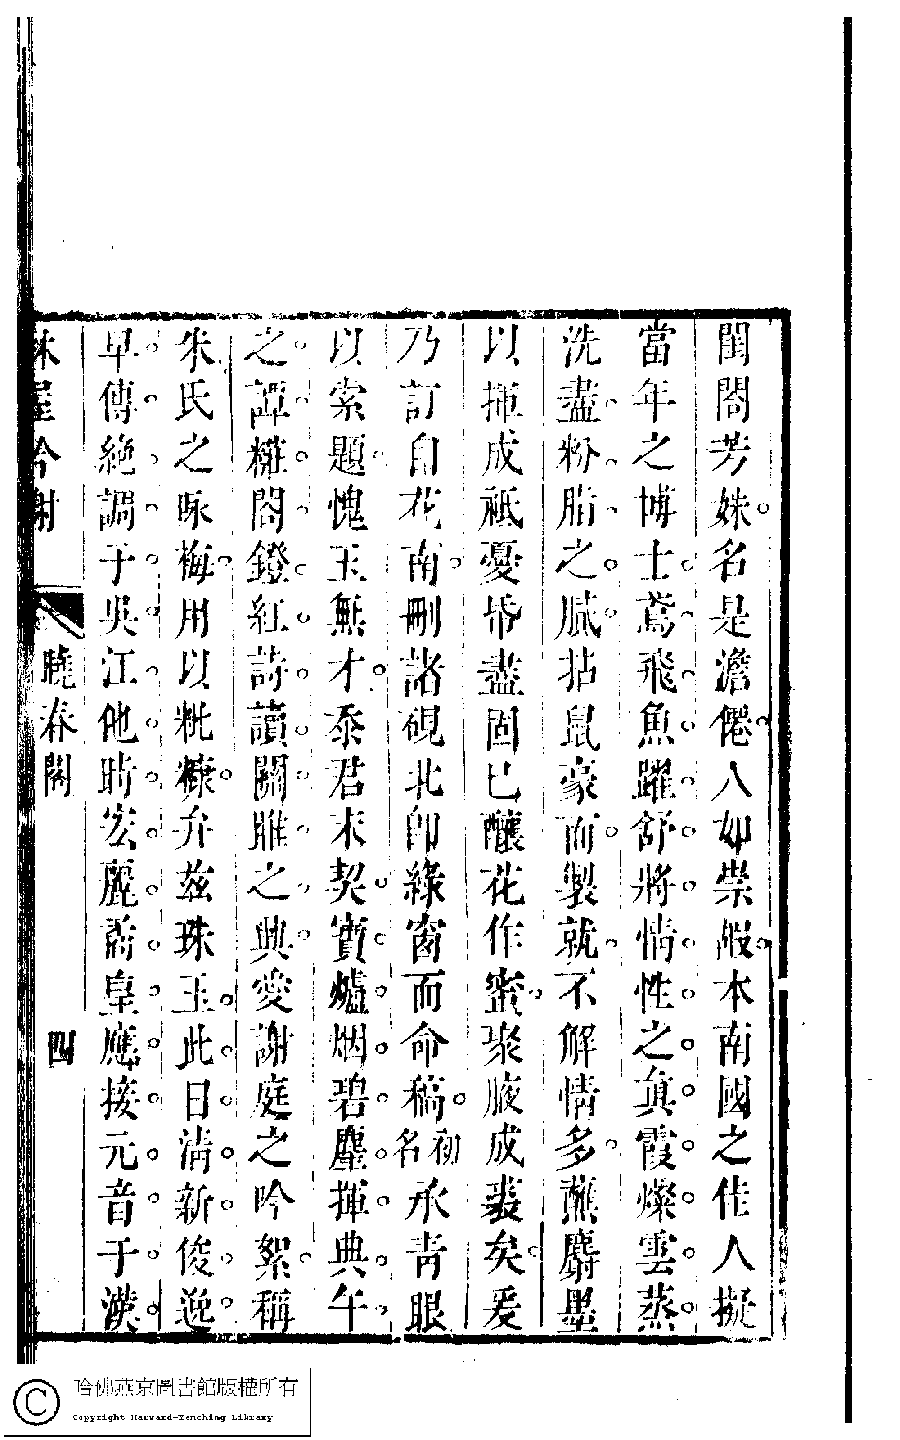 閨閤芳姝名是澹僊人如崇嘏本南國之佳人擬
當年之博士鳶飛魚躍舒將情性之真霞燦雲蒸
洗盡粉脂之膩拈鼠豪而製就不解情多蘸麝墨
以揮成祇憂帋盡固已釀花作蜜聚腋成裘矣爰
乃訂自花南刪諸硯北卽綠窗而命稿初名承青眼
以索題愧玉無才忝君末契寳爐烟碧麈揮典午
之譚糚閣鐙紅詩讀關雎之興愛謝庭之吟絮稱
朱氏之咏梅用以粃糠弁茲珠玉此日淸新俊逸
早傳絶調于吳江他時宏麗矞皇應接元音于漢
林屋吟榭
曉春閣
四
哈佛燕京圖書館版權所有
Copyright Harvard-Yenching Library